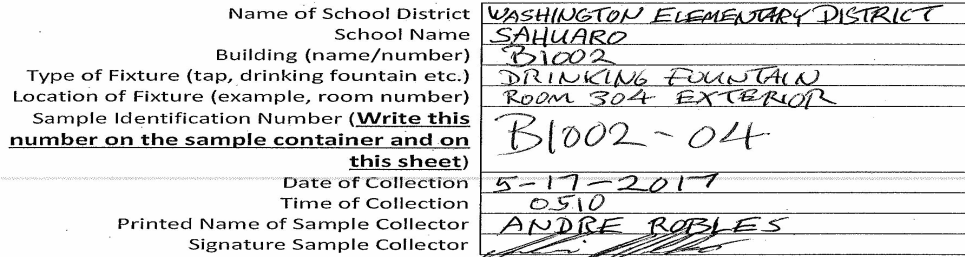 Name of School District WASHINGTON ELEMENTARY DISTRICT
School Name SAHUARO
Building (name/number) B1002
Type of Fixture (tap, drinking fountain etc.) DRINKING FOUNTAIN
Location of Fixture (example, room number) ROOM 304 EXTERIOR
Sample Identification Number (Write this
number on the sample container and on B1002-04
this sheet)
Date of Collection 5-17-2017
Time of Collection 0510
Printed Name of Sample Collector ANDRE ROBLES
Signature Sample Collector